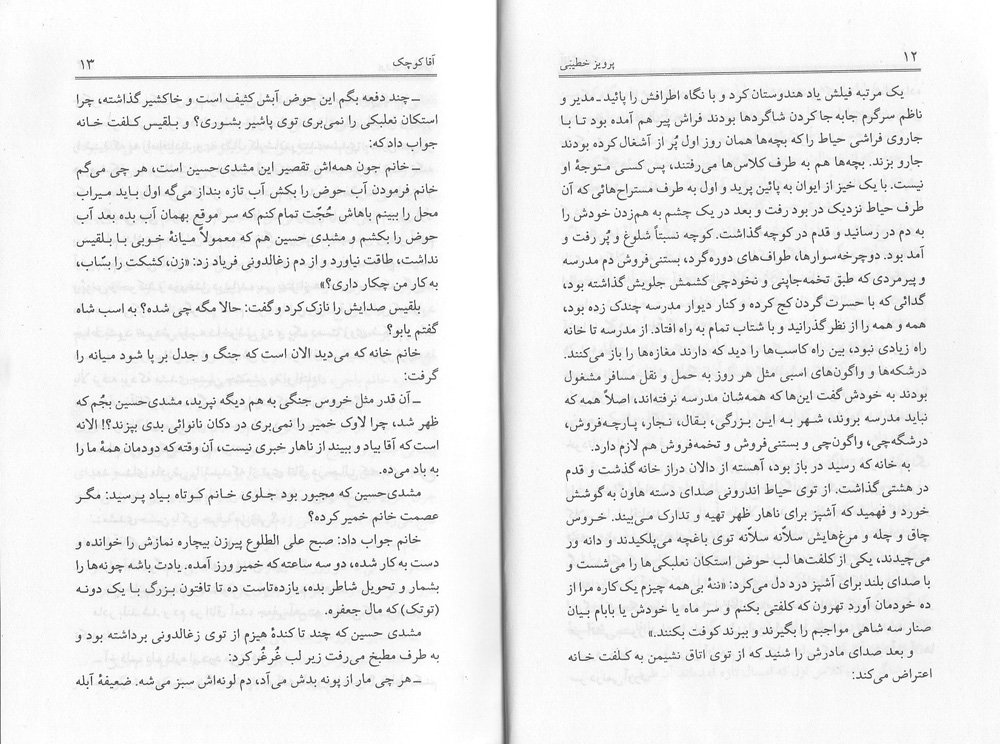 ۱۲
پرویز خطیبی
یک مرتبه فیلش یاد هندوستان کرد و با نگاه اطرافش را پائید ـ مدیر و
ناظم سرگرم جابه جا کردن شاگردها بودند فراش پیر هم آمده بود تا با
جاروی فراشی حیاط را که بچه‌ها همان روز اول پُر از آشغال کرده بودند
جارو بزند. بچه‌ها هم به طرف کلاس‌ها می‌رفتند، پس کسی متوجهٔ او
نیست. با یک خیز از ایوان به پائین پرید و اول به طرف مستراح‌هائی که آن
طرف حیاط نزدیک در بود رفت و بعد در یک چشم به هم‌زدن خودش را
به دم در رسانید و قدم در کوچه گذاشت. کوچه نسبتاً شلوغ و پُر رفت و
آمد بود. دوچرخه‌سوارها، طواف‌های دوره‌گرد، بستنی‌فروش دم مدرسه
و پیرمردی که طبق تخمه‌جاپنی و نخودچی کشمش جلویش گذاشته بود،
گدائی که با حسرت گردن کج کرده و کنار دیوار مدرسه چندک زده بود،
همه و همه را از نظر گذرانید و با شتاب تمام به راه افتاد. از مدرسه تا خانه
راه زیادی نبود، بین راه کاسب‌ها را دید که دارند مغازه‌ها را باز می‌کنند.
درشکه‌ها و واگون‌های اسبی مثل هر روز به حمل و نقل مسافر مشغول
بودند به خودش گفت این‌ها که همه‌شان مدرسه نرفته‌اند، اصلاً همه که
نباید مدرسه بروند، شهر به ایـن بزرگـی، بقال، نجار، پـارچه‌فروش،
درشگه‌چی، واگون‌چی و بستنی‌فروش و تخمه‌فروش هم لازم دارد.
به خانه که رسید در باز بود، آهسته از دالان دراز خانه گذشت و قدم
در هشتی گذاشت. از توی حیاط اندرونی صدای دسته هاون به گوشش
خورد و فهمید که آشپز برای ناهار ظهر تهیه و تدارک مـی‌بیند. خـروس
چاق و چله و مرغ‌هایش سلاّنه سلاّنه توی باغچه می‌پلکیدند و دانه ور
می‌چیدند، یکی از کلفت‌ها لب حوض استکان نعلبکی‌ها را می‌شست و
با صدای بلند برای آشپز درد دل می‌کرد: «ننهٔ بی‌همه چیزم یک کاره مرا از
ده خودمان آورد تهرون که کلفتی بکنم و سر ماه یا خودش یا بابام بیان
صنار سه شاهی مواجبم را بگیرند و ببرند کوفت بکنند.»
و بعد صدای مادرش را شنید که از توی اتاق نشیمن به کـلفت خـانه
اعتراض می‌کند:
آقا کوچک
۱۳
ـ چند دفعه بگم این حوض آبش کثیف است و خاکشیر گذاشته، چرا
استکان نعلبکی را نمی‌بری توی پاشیر بشوری؟ و بـلقیس کـلفت خـانه
جواب داد که:
ـ خانم جون همه‌اش تقصیر این مشدی‌حسین است، هر چی می‌گم
خانم فرمودن آب حوض را بکش آب تازه بنداز می‌گه اول باید میراب
محل را ببینم باهاش حُجّت تمام کنم که سر موقع بهمان آب بده بعد آب
حوض را بکشم و مشدی حسین هم که معمولاً میانهٔ خوبی بـا بـلقیس
نداشت، طاقت نیاورد و از دم زغالدونی فریاد زد: «زن، کشکت را بسّاب،
به کار من چکار داری؟»
بلقیس صدایش را نازک کرد و گفت: حالا مگه چی شده؟ به اسب شاه
گفتم یابو؟
خانم خانه که می‌دید الان است که جنگ و جدل بر پا شود میانه را
گرفت:
ـ آن قدر مثل خروس جنگی به هم دیگه نپرید، مشدی‌حسین بجُم که
ظهر شد، چرا لاوک خمیر را نمی‌بری در دکان نانوائی بدی بپزند؟! الانه
است که آقا بیاد و ببیند از ناهار خبری نیست، آن وقته که دودمان همهٔ ما را
به باد می‌ده.
مشدی‌حسین که مجبور بود جـلوی خـانم کـوتاه بیاد پـرسید: مگـر
عصمت خانم خمیر کرده؟
خانم جواب داد: صبح علی الطلوع پیرزن بیچاره نمازش را خوانده و
دست به کار شده، دو سه ساعته که خمیر ورز آمده. یادت باشه چونه‌ها را
بشمار و تحویل شاطر بده، یازده‌تاست ده تا تافتون بـزرگ بـا یک دونـه
(توتک) که مال جعفره.
مشدی حسین که چند تا کندهٔ هیزم از توی زغالدونی برداشته بود و
به طرف مطبخ می‌رفت زیر لب غُرغُر کرد:
ـ هر چی مار از پونه بدش می‌آد، دم لونه‌اش سبز می‌شه. ضعیفهٔ آبله